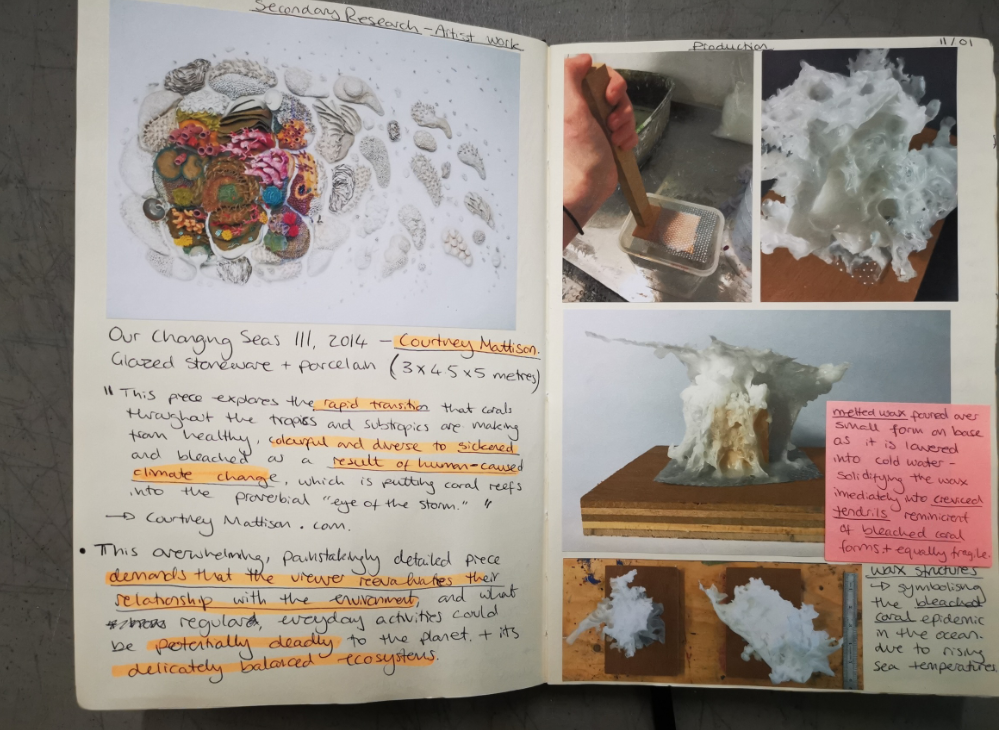 Secondary Research - Artist Work
Our Changing Seas III, 2014 - Courtney Mattison.
Glazed stoneware + porcelain (3 x 4.5 x 5 metres)
" This piece explores the rapid transition that corals
throughout the tropics and subtropics are making
from healthy, colourful and diverse to sickened
and bleached as a result of human-caused
climate change, which is putting coral reefs
into the proverbial "eye of the storm." "
→ Courtney Mattison . com.
• This overwhelming, painstakingly detailed piece
demands that the viewer reevaluates their
relationship with the environment, and what
regulard, everyday activities could
be potentially deadly to the planet, + its
delicately balanced ecosystems.
Production
11/01
melted wax poured over
small form on base
as it is lowered
into cold water -
solidifying the wax
imediately into creviced
tendrils reminicient
of bleached coral
forms + equally fragile.
wax structures
→ symbolising
the bleached
coral epidemic
in the ocean.
due to rising
sea temperatures